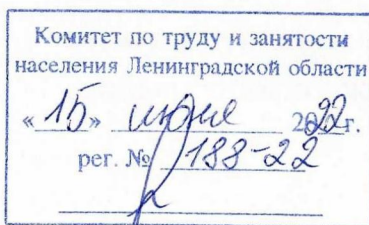 Комитет по труду и занятости
населения Ленинградской области
«15» июня 2022г.
рег. № 188-22